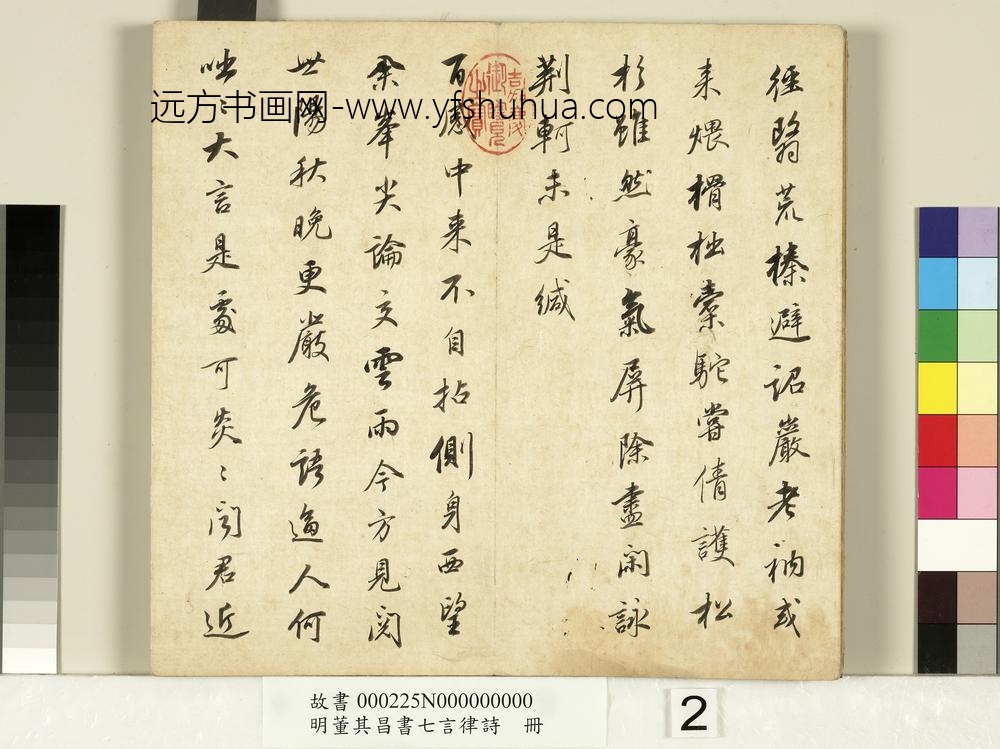 徑翳荒榛避詔巖老衲或
来煨榾柮橐駝嘗倩護松
杉雖然豪氣屏除盡閑詠
荆軻未是緘
百感中来不自拈側身西望
余峯尖論交雲雨今方見閱
世陽秋晚更嚴危語逼人何
咄〻大言是處可炎〻聞君近
远方书画网-www.yfshuhua.com
故書 000225N000000000
明董其昌書七言律詩 冊
2